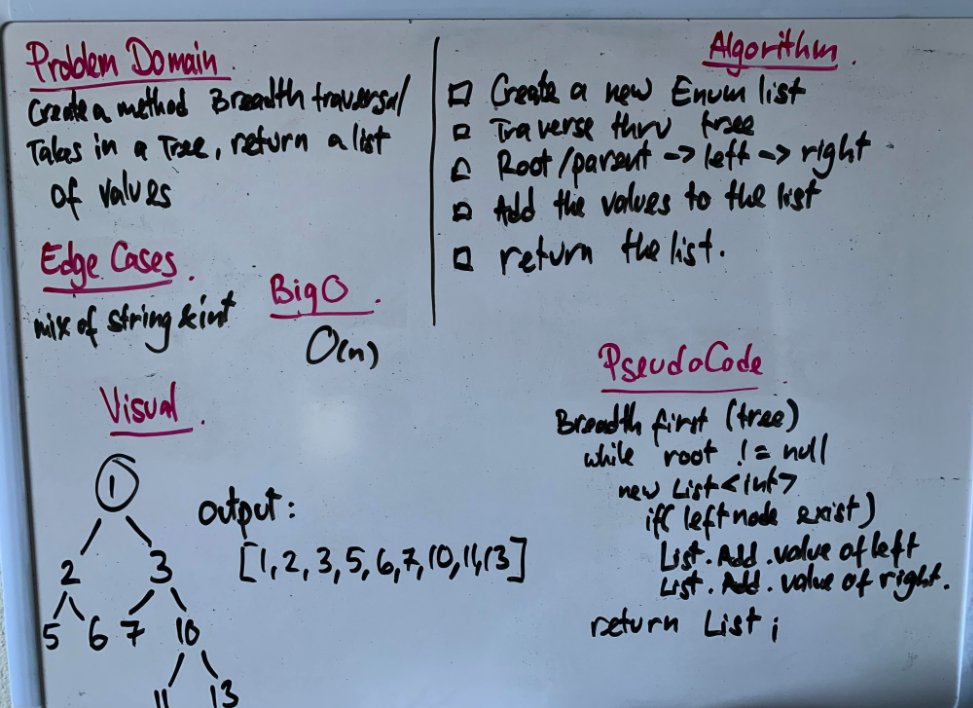 Problem Domain.
Create a method Breadth traversal
Takes in a Tree, return a list
of values
Edge Cases.
mix of string & int
Big O.
O(n)
Visual.
1
2 3
5 6 7 10
11 13
output:
[1, 2, 3, 5, 6, 7, 10, 11, 13]
Algorithm.
Create a new Enum list
Traverse thru tree
Root/parent -> left -> right
Add the values to the list
return the list.
PseudoCode.
Breadth first (tree)
while root != null
new List<int>
if( left node exist)
List.Add.value of left
List.Add.value of right.
return List;